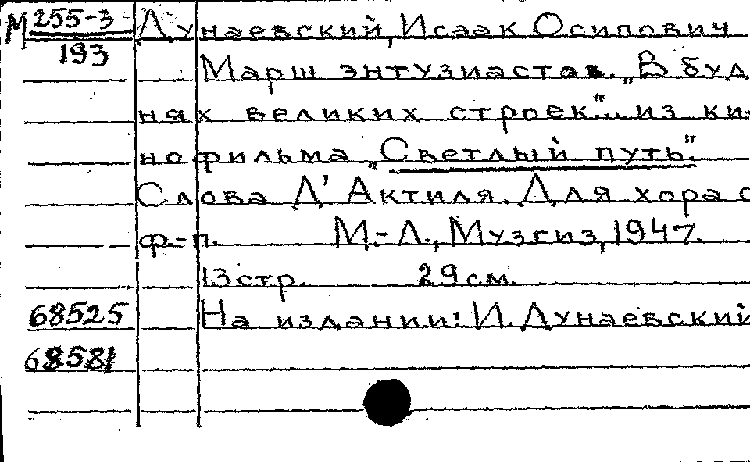 М 255-3 Дунаевский, Исаак Осипович
193
Марш энтузиастов. "В буд
нях великих строек"... из ки-
нофильма "Светлый путь".
Слова Д'Актиля. Для хора с
ф.-п. М.-Л., Музгиз, 1947.
13 стр. 29 см.
68525 На издании: И. Дунаевский
68581